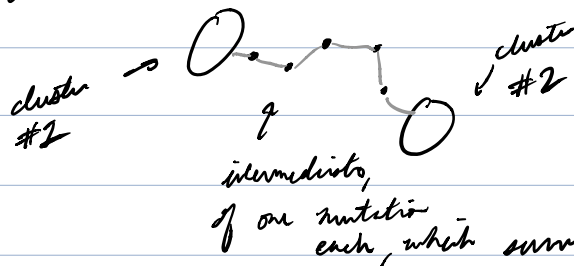 cluster
#2
cluster
#2
intermediates,
of one mutation
each, which